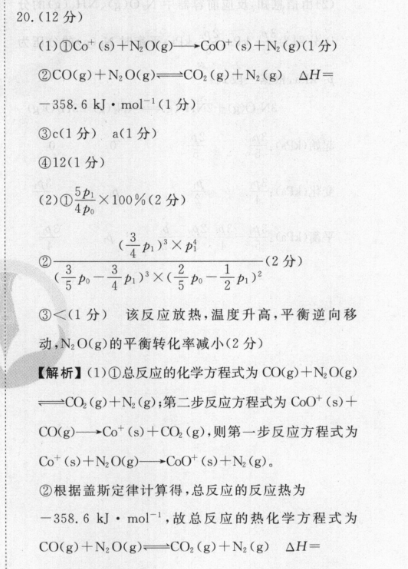 20.(12分)
(1)①Co⁺(s)+N₂O(g)⟶CoO⁺(s)+N₂(g)(1分)
②CO(g)+N₂O(g)⇌CO₂(g)+N₂(g) ΔH=
-358.6 kJ·mol⁻¹(1分)
③c(1分) a(1分)
④12(1分)
(2)①5p₁/4p₀×100%(2分)
②((3/4 p₁)³×p₁⁴)/((3/5 p₀-3/4 p₁)³×(2/5 p₀-1/2 p₁)²)(2分)
③<(1分) 该反应放热,温度升高,平衡逆向移
动,N₂O(g)的平衡转化率减小(2分)
【解析】(1)①总反应的化学方程式为CO(g)+N₂O(g)
⇌CO₂(g)+N₂(g);第二步反应方程式为CoO⁺(s)+
CO(g)⟶Co⁺(s)+CO₂(g),则第一步反应方程式为
Co⁺(s)+N₂O(g)⟶CoO⁺(s)+N₂(g)。
②根据盖斯定律计算得,总反应的反应热为
-358.6 kJ·mol⁻¹,故总反应的热化学方程式为
CO(g)+N₂O(g)⇌CO₂(g)+N₂(g) ΔH=